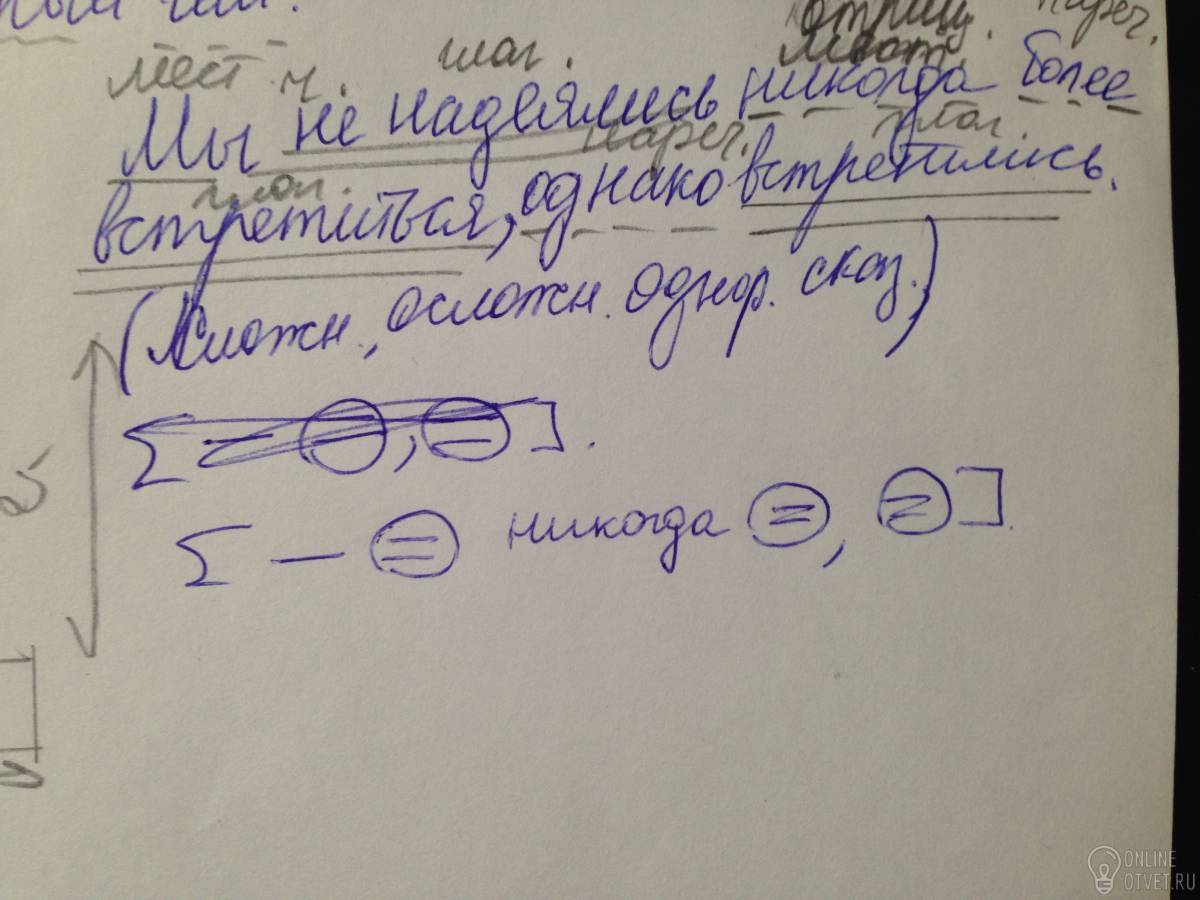 мест ч. глаг. отриц. нареч.
мест.
Мы не надеялись никогда более
глаг. нареч. глаг.
встретиться, однако встретились.
(сложн., осложн. однор. сказ.)
никогда
ONLINE
OTVET.RU